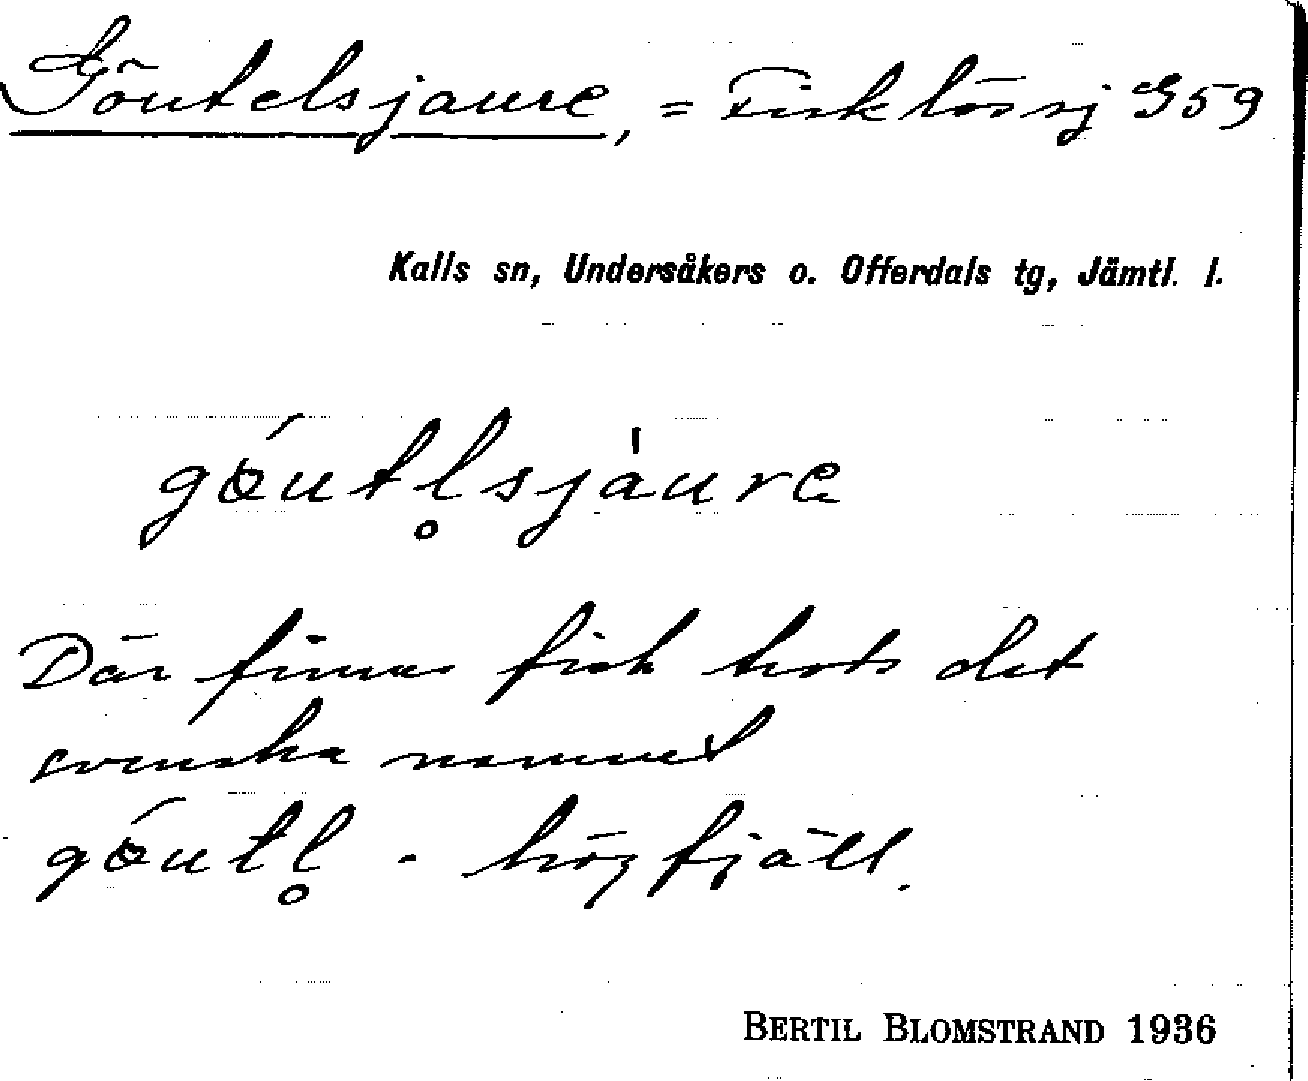 Göutelsjaure, = Fisklössj G59
Kalls sn, Undersåkers o. Offerdals tg, Jämtl. l.
gǿutl̥sjàure
Där finns fisk trots det
svenska namnet
gǿutl̥ - högfjäll.
BERTIL BLOMSTRAND 1936